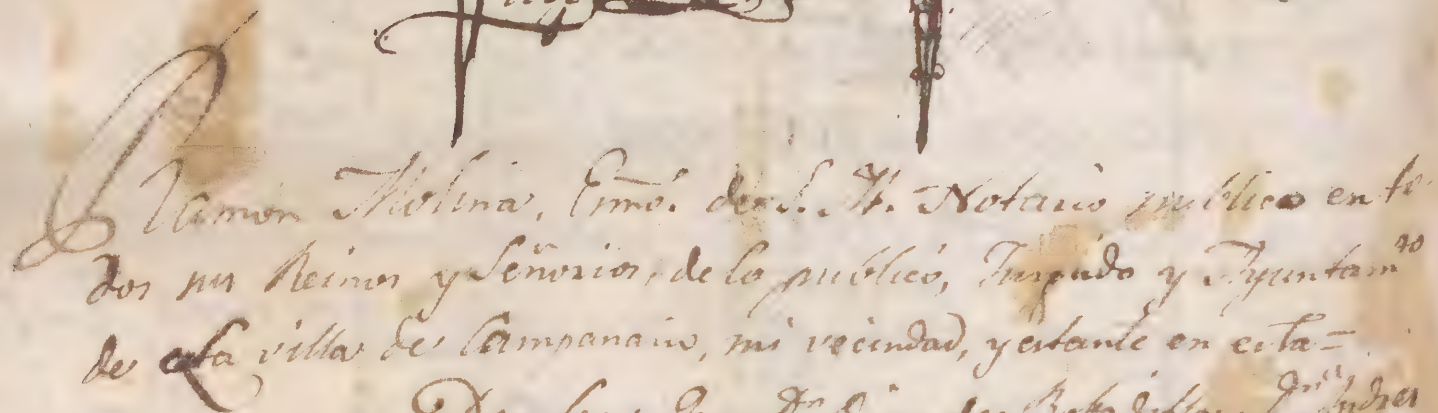 Ramon Molina, Esno. de S. M. Notario publico en to
dos sus Reinos y Señorios, de lo publico, Juzgado y Ayuntam.to
de esta villa de Campanario, mi vecindad, y estante en esta=